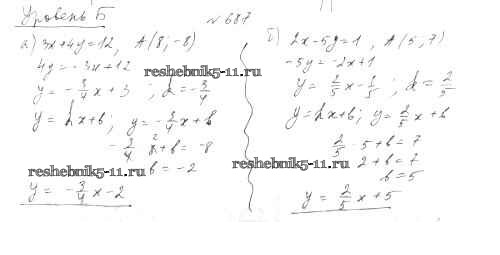 Уровень Б
№ 687
а) 3x+4y=12, A(8; -8)
4y = -3x+12
y = -3/4 x + 3 ; k = -3/4
y = kx+b ; y = -3/4 x + b
-3/4 · 8 + b = -8
b = -2
y = -3/4 x - 2
б) 2x-5y=1, A(5; 7)
-5y = -2x+1
y = 2/5 x - 1/5 ; k = 2/5
y = kx+b ; y = 2/5 x + b
2/5 · 5 + b = 7
2 + b = 7
b = 5
y = 2/5 x + 5
reshebnik5-11.ru
reshebnik5-11.ru
reshebnik5-11.ru